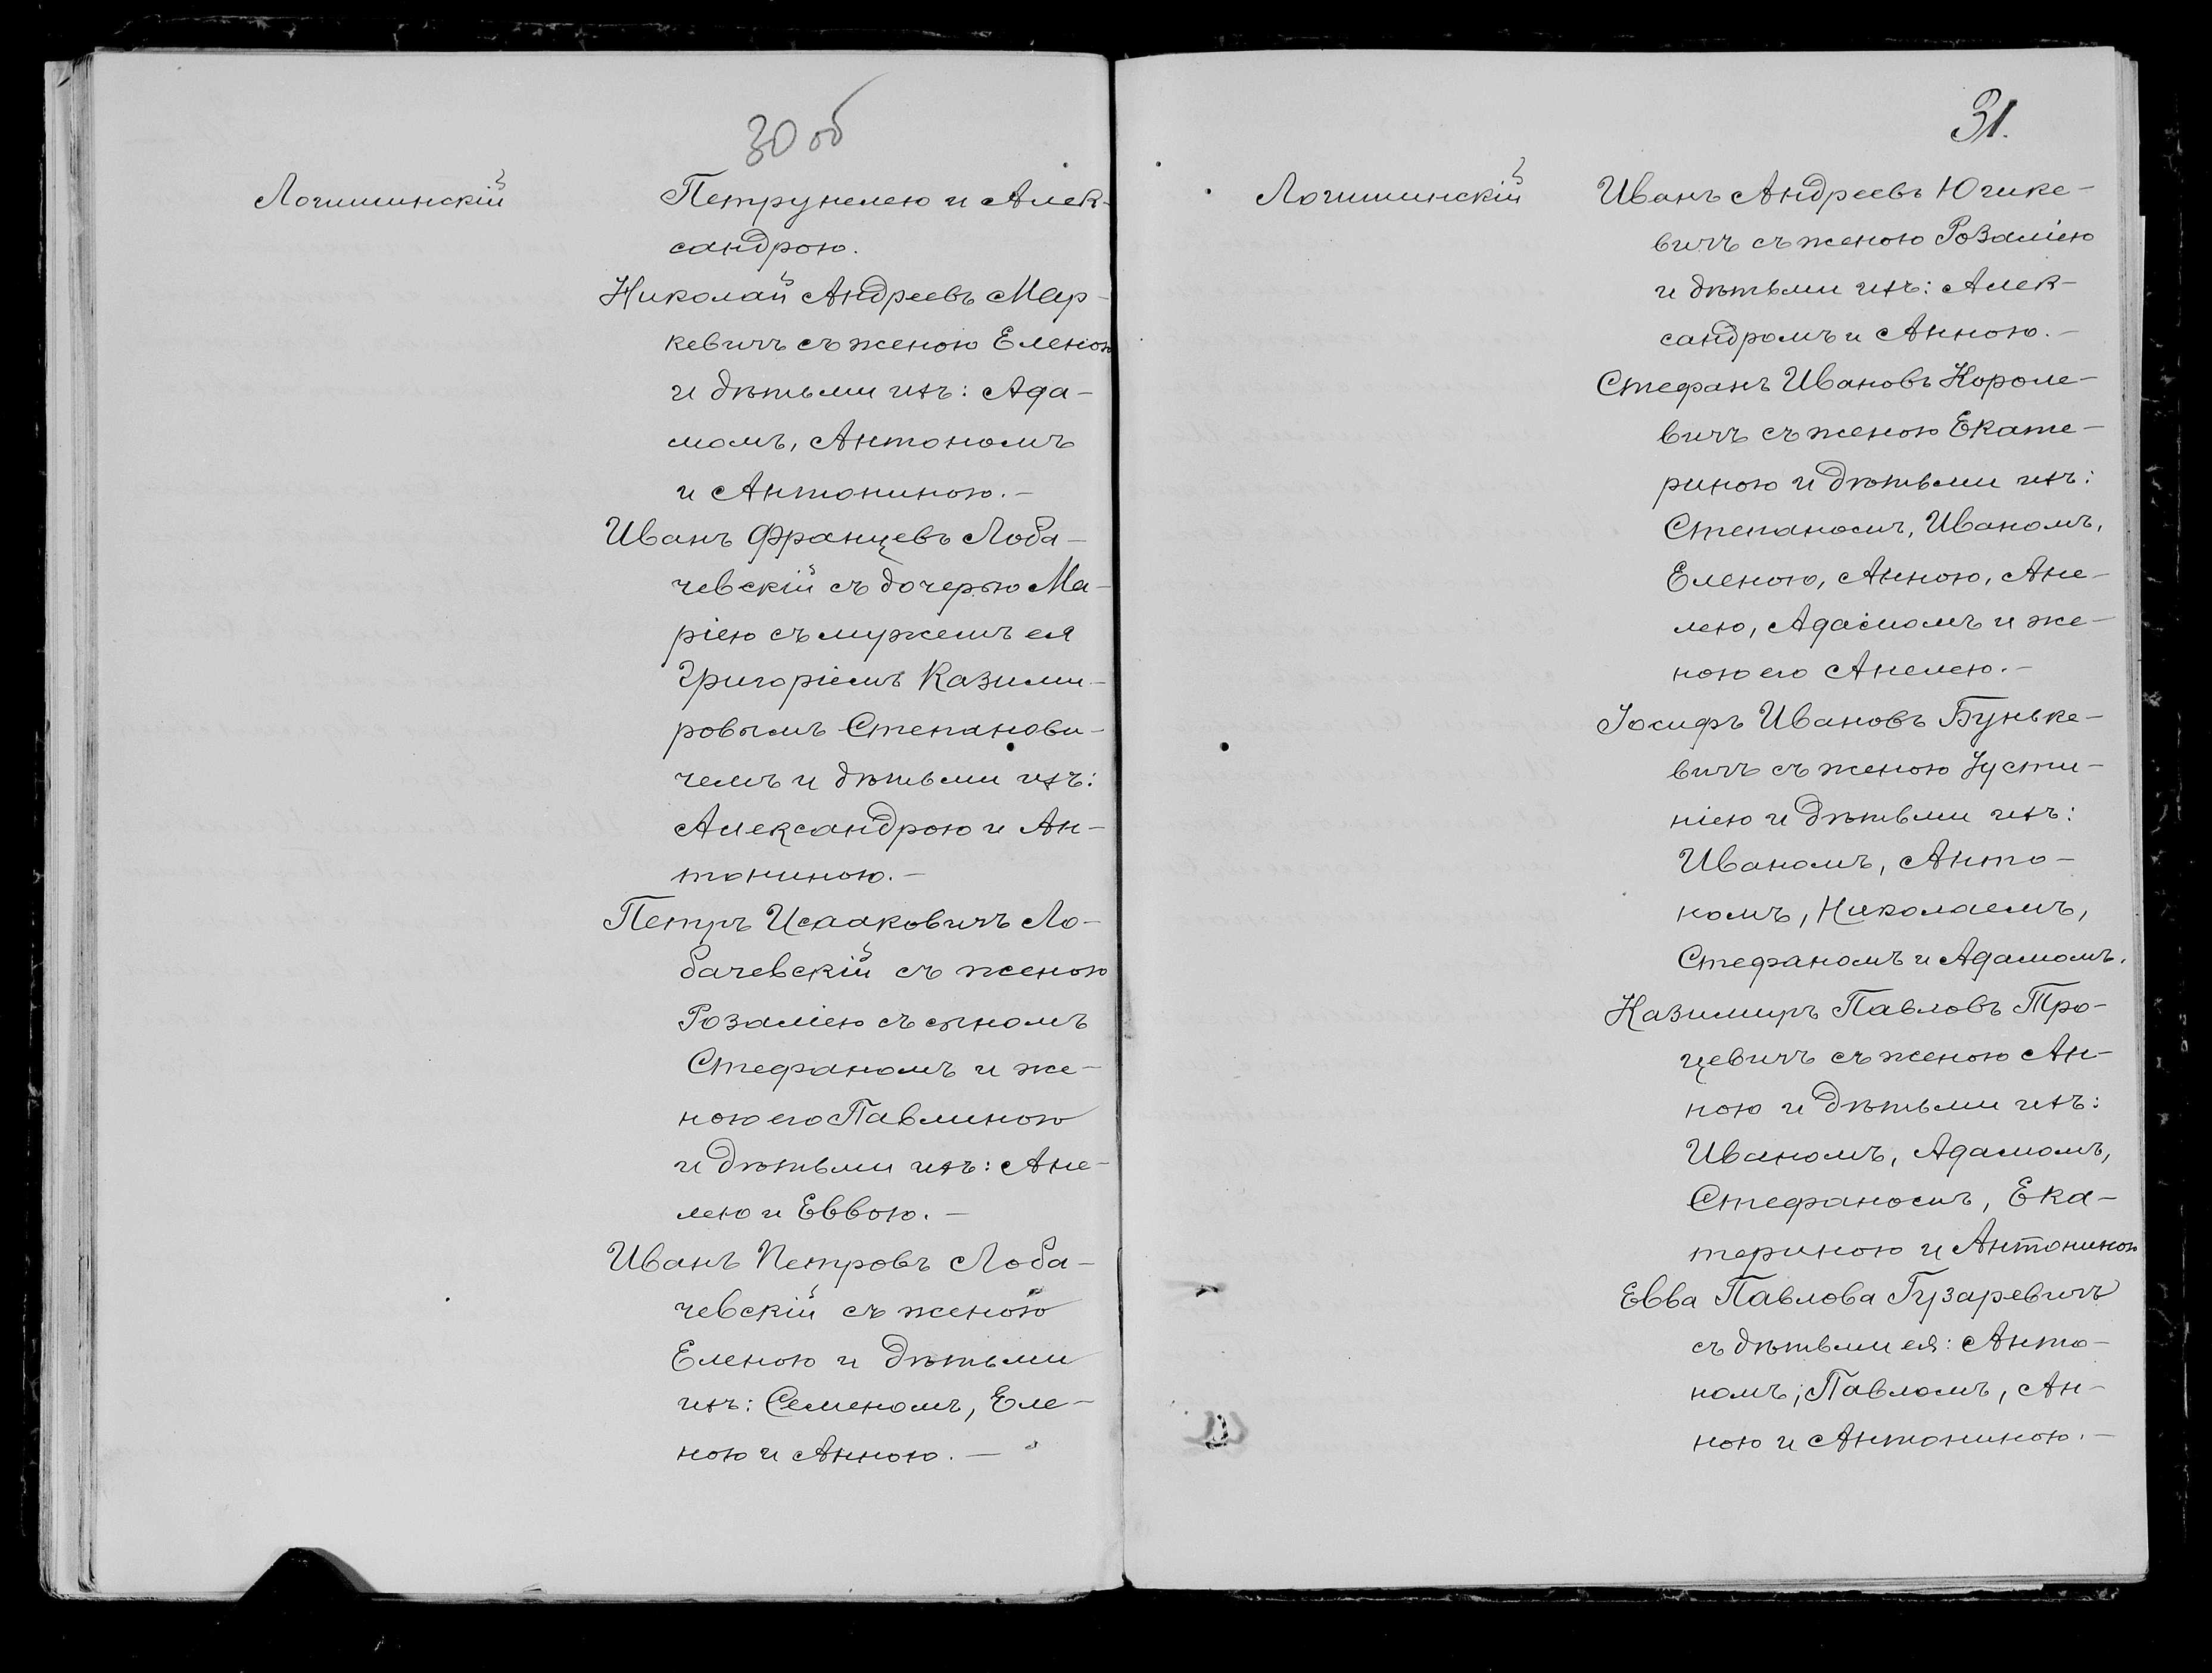 30 об
Логишинскій
Петрунелею и Алек-
сандрою.
Николай Андреевъ Мар-
кевичъ съ женою Еленою
и дѣтьми ихъ: Ада-
момъ, Антономъ
и Антониною. -
Иванъ Францевъ Лоба-
чевскій съ дочерью Ма-
ріею съ мужемъ ея
Григоріемъ Казими-
ровымъ Степанови-
чемъ и дѣтьми ихъ:
Александрою и Ан-
тониною. -
Петръ Исааковичъ Ло-
бачевскій съ женою
Розаліею съ сыномъ
Стефаномъ и же-
ною его Павлиною
и дѣтьми ихъ: Ане-
лею и Еввою. -
Иванъ Петровъ Лоба-
чевскій съ женою
Еленою и дѣтьми
ихъ: Семеномъ, Еле-
ною и Анною. -
31.
Логишинскій
Иванъ Андреевъ Югике-
вичъ съ женою Розаліею
и дѣтьми ихъ: Алек-
сандромъ и Анною. -
Стефанъ Ивановъ Короле-
вичъ съ женою Екате-
риною и дѣтьми ихъ:
Степаномъ, Иваномъ,
Еленою, Анною, Ане-
лею, Адамомъ и же-
ною его Анелею. -
Іосифъ Ивановъ Буньке-
вичъ съ женою Іусти-
ніею и дѣтьми ихъ:
Иваномъ, Анто-
номъ, Николаемъ,
Стефаномъ и Адамомъ.
Казимиръ Павловъ Тро-
цевичъ съ женою Ан-
ною и дѣтьми ихъ:
Иваномъ, Адамомъ,
Стефаномъ, Ека-
териною и Антониною
Евва Павлова Гузаревичъ
съ дѣтьми ея: Анто-
номъ, Павломъ, Ан-
ною и Антониною. -